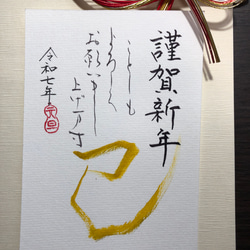 謹賀新年
ことしも
よろしく
お願いし
上げます
令和七年
元旦
巳